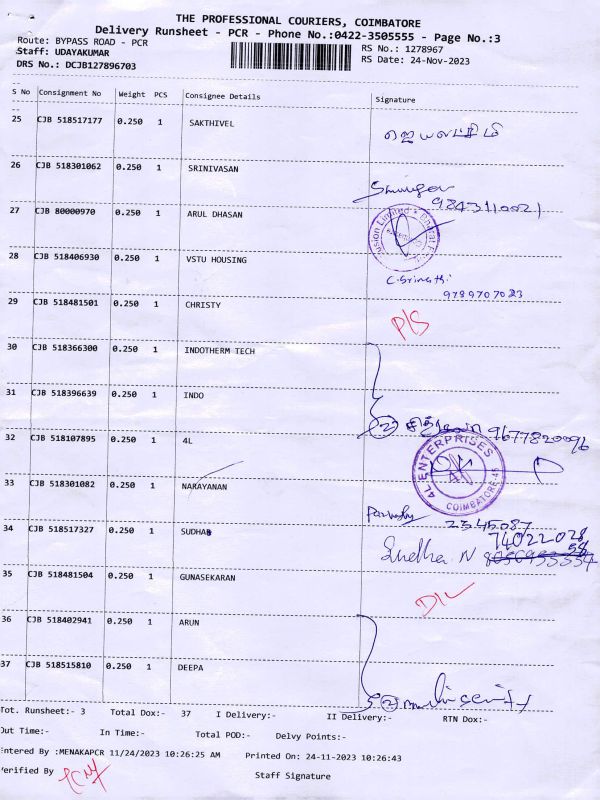 THE PROFESSIONAL COURIERS, COIMBATORE
Delivery Runsheet - PCR - Phone No.:0422-3505555 - Page No.:3
Route: BYPASS ROAD - PCR
Staff: UDAYAKUMAR
DRS No.: DCJB127896703
RS No.: 1278967
RS Date: 24-Nov-2023
S No Consignment No Weight PCS Consignee Details Signature
25 CJB 518517177 0.250 1 SAKTHIVEL
26 CJB 518301062 0.250 1 SRINIVASAN
9843110021
27 CJB 80000970 0.250 1 ARUL DHASAN
28 CJB 518406930 0.250 1 VSTU HOUSING
C. Srimathi
9789707023
29 CJB 518481501 0.250 1 CHRISTY
P/S
30 CJB 518366300 0.250 1 INDOTHERM TECH
31 CJB 518396639 0.250 1 INDO
② 9677820096
32 CJB 518107895 0.250 1 4L
4L ENTERPRISES
COIMBATORE-45
33 CJB 518301082 0.250 1 NARAYANAN
2345087
34 CJB 518517327 0.250 1 SUDHAR
74022028
58
Sudha. N
35 CJB 518481504 0.250 1 GUNASEKARAN
D/L
36 CJB 518402941 0.250 1 ARUN
37 CJB 518515810 0.250 1 DEEPA
②
Tot. Runsheet:- 3 Total Dox:- 37 I Delivery:- II Delivery:- RTN Dox:-
Out Time:- In Time:- Total POD:- Delvy Points:-
Entered By :MENAKAPCR 11/24/2023 10:26:25 AM Printed On: 24-11-2023 10:26:43
Verified By Staff Signature